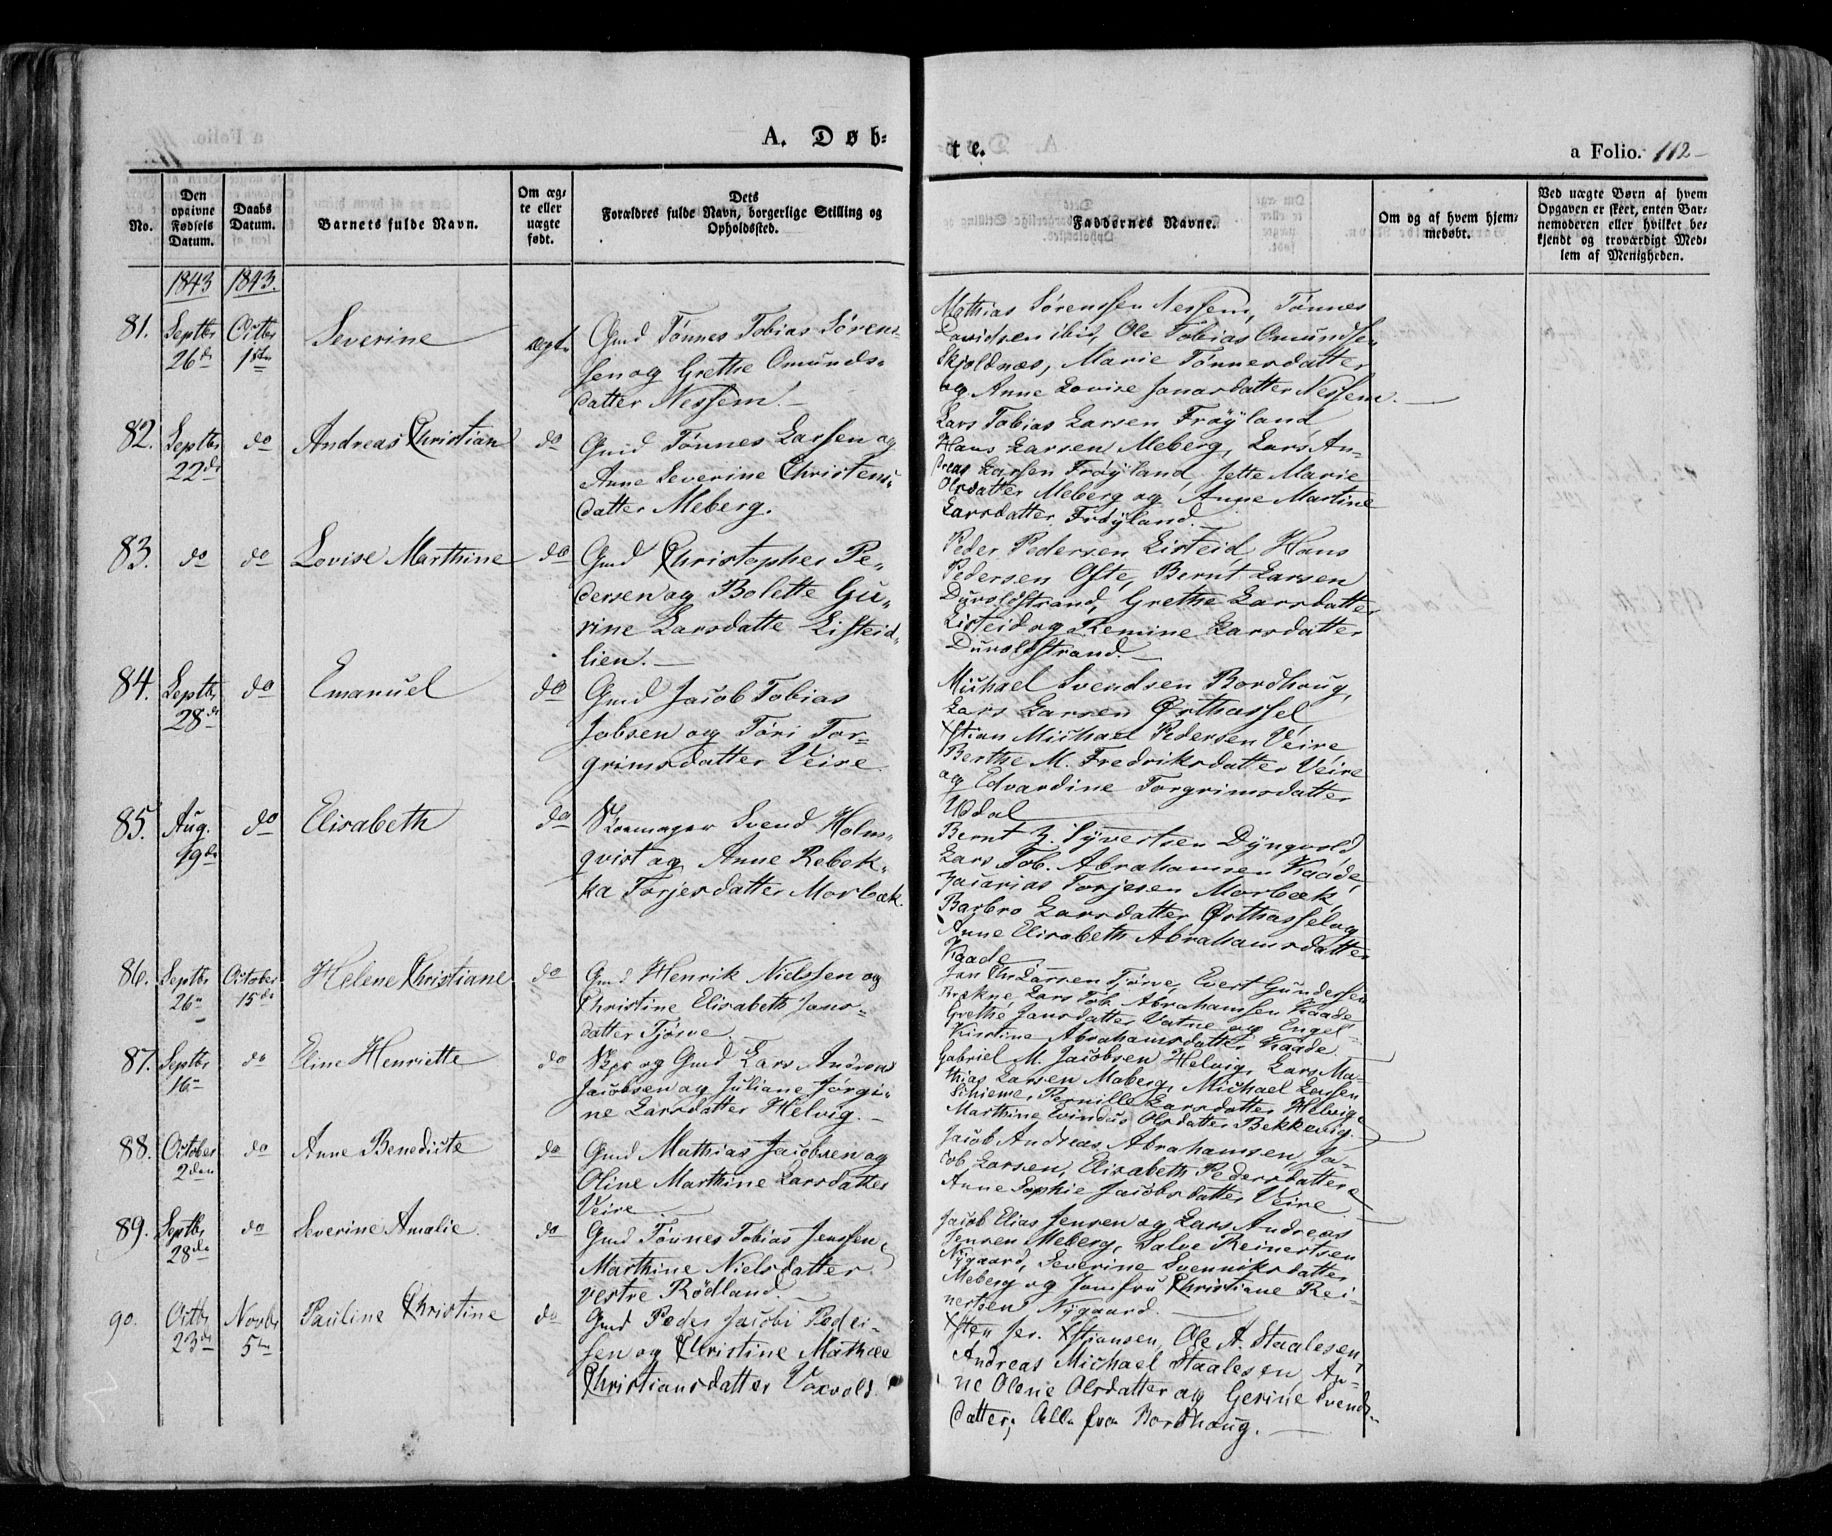 A. Døb-
te.
a Folio. 112
No.
Den opgivne Fødsels Datum.
Daabs Datum.
Barnets fulde Navn.
Om ægte eller uægte født.
Dets Forældres fulde Navn, borgerlige Stilling og Opholdssted.
Faddernes Navne.
Om og af hvem hjemmedøbt.
Ved uægte Børn af hvem Opgaven er skeet, enten Barnemoderen eller hvilket bekjendt og troværdigt Medlem af Menigheden.
1843 1843.
81. Septbr 26de Octbr 1ste Severine ægte
Gmd Tønnes Tobias Sørens-
sen og Grethe Omunds-
datter Nessem.
Mathias Sørenssen Nessem, Tønnes
Davidsen ibid, Ole Tobias Omundse
Skjoldnæs, Marie Tønnesdatter
og Anne Lovise Jonasdatter Nessem.
82. Septbr 22de do Andreas Christian do
Gmd Tønnes Larssen og
Anne Severine Christens-
datter Meberg.
Lars Tobias Larsen Frøyland,
Hans Larsen Meberg, Lars An-
dreas Larsen Frøyland, Jette Marie
Olsdatter Meberg og Anne Martine
Larsdatter Frøyland.
83. do do Lovise Marthine do
Gmd Christopher Pe-
dersen og Bolette Gu-
rine Larsdatte Listeid-
lien.
Peder Pedersen Listeid, Hans
Pedersen Ofte, Bernt Larsen
Duvoldstrand, Grethe Larsdatter
Listeid og Remine Larsdatter
Duvoldstrand.
84. Septbr 28de do Emanuel do
Gmd Jacob Tobias
Jobsen og Tori Tor-
grimsdatter Veire
Michael Svendsen Bordhoug,
Lars Larsen Østhassel
Xstian Michael Pedersen Veire
Berthe M. Fredriksdatter Veire
og Edvardine Torgrimsdatter
Udal
85. Aug. 19de do Elisabeth do
Skoemager Svend Holm-
qvist og Anne Rebek-
ka Torjesdatter Morbæk.
Bernt Z. Syvertsen Dyngvold
Lars Tob. Abrahamsen Kaade,
Zacarias Torjesen Morbæk,
Barbro Larsdatter Østhassel og
Anne Elisabeth Abrahamsdatter
Kaade
86. Septbr 26 October 15de Helene Christiane do
Gmd Henrik Nielssen og
Christine Elisabeth Jans-
datter Tjørve
Jan Chr Larsen Tjørve, Evert Gundersen
Brækne, Lars Tob. Abrahamssen Kaade
Grethe Jansdatter Vatne og Engel
Kirstine Abrahamsdatter Kaade.
87. Septbr 16 do Eline Henriette do
Skpr og Gmd Lars Andreas
Jacobsen og Juliane Jørgi-
ne Larsdatter Helvig.
Gabriel M. Jacobsen Helvig, Lars Ma-
thias Larsen Maberg, Michael Larsen
Schieme, Pernille Larsdatter Helvig
Marthine Olsdatter Bekkevig.
88. October 2den do Anne Benedicte do
Gmd Mathias Jacobsen og
Oline Marthine Larsdatter
Veire
Jacob Andreas Abrahamsen, Ja-
cob Larsen, Elisabeth Pedersdatter
Anne Sophie Jacobsdatter Veire.
89. Septbr 28de do Severine Amalie. do
Gmd Tønnes Tobias Jenssen,
Marthine Nielsdatter
vestre Rødland.
Jacob Elias Jensen og Lars Andreas
Jensen Meberg, Salve Reinertsen
Nygaard, Severine Svenniksdatter
Meberg og Jomfru Christiane Rei-
nertsen Nygaard.
90. Octbr 23de Novbr 5te Pauline Christine do
Gmd Peder Jacobi Peder-
sen og Christine Mathee
Christiansdatter Voxvold.
Xsten Jer. Xstjansen, Ole A. Staalesen
Andreas Michael Staalesen, An-
ne Olene Olsdatter og Gerine Svends-
datter, Alle fra Bordhoug.